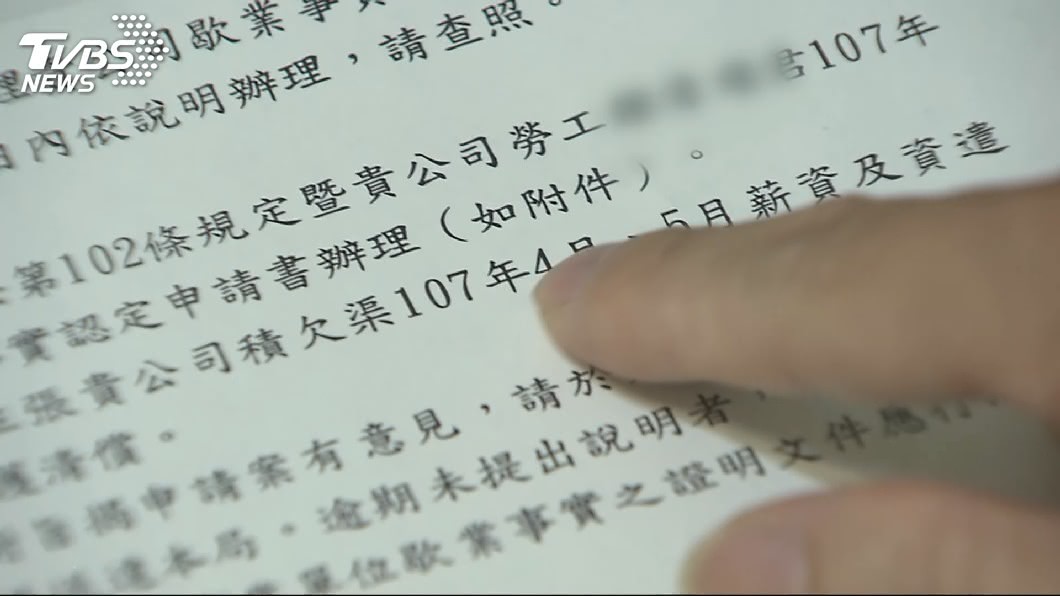 TVBS
NEWS
歇業事
內依說明辦理，請查照。
第102條規定暨貴公司勞工 君107年
實認定申請書辦理（如附件）。
張貴公司積欠渠107年4月、5月薪資及資遣
清償。
揭申請案有意見，請於
達本局。逾期未提出說明者，
單位歇業事實之證明文件應行